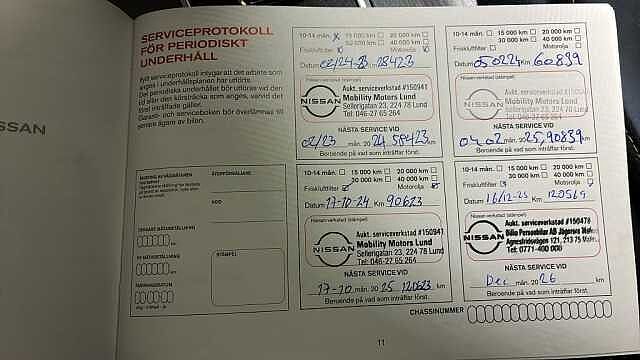 SSAN
SERVICEPROTOKOLL
FÖR PERIODISKT
UNDERHÅLL
Ifyllt serviceprotokoll intygar att det arbete som
anges i underhållsplanen har utförts.
Det periodiska underhållet bör utföras vid den
tid eller den körsträcka som anges, varvid det
först inträffade gäller.
Garanti- och serviceboken bör överlämnas till
senare ägare av bilen.
10-14 mån. 15 000 km 20 000 km
30 000 km 40 000 km
Friskluftfilter Motorolja
Datum 02/24-23 28423
Nissan-verkstad (stämpel)
NISSAN
Aukt. serviceverkstad #150941
Mobility Motors Lund
Sellerigatan 23, 224 78 Lund
Tel: 046-27 65 264
NÄSTA SERVICE VID
02/23 mån. 20 24, 58423 km
Beroende på vad som inträffar först.
10-14 mån. 15 000 km 20 000 km
30 000 km 40 000 km
Friskluftfilter Motorolja
Datum 050224 Km 60839
Nissan-verkstad (stämpel)
NISSAN
Aukt. serviceverkstad #150941
Mobility Motors Lund
Sellerigatan 23, 224 78 Lund
Tel: 046-27 65 264
NÄSTA SERVICE VID
04 02 mån. 20 25, 90839 km
Beroende på vad som inträffar först.
STÄMPEL
10-14 mån. 15 000 km 20 000 km
30 000 km 40 000 km
Friskluftfilter Motorolja
Datum 17-10-24 Km 90623
Nissan-verkstad (stämpel)
NISSAN
Aukt. serviceverkstad #150941
Mobility Motors Lund
Sellerigatan 23, 224 78 Lund
Tel: 046-27 65 264
NÄSTA SERVICE VID
17-10 mån. 20 25 120623 km
Beroende på vad som inträffar först.
10-14 mån. 15 000 km 20 000 km
30 000 km 40 000 km
Friskluftfilter Motorolja
Datum 16/12-25 Km 120569
Nissan-verkstad (stämpel)
NISSAN
Aukt. serviceverkstad #150478
Bilia Personbilar AB Jägersro
Agnesfridsvägen 121, 213 75
Tel: 0771-400 000
NÄSTA SERVICE VID
Dec mån. 20 26 km
Beroende på vad som inträffar först.
CHASSINUMMER
11